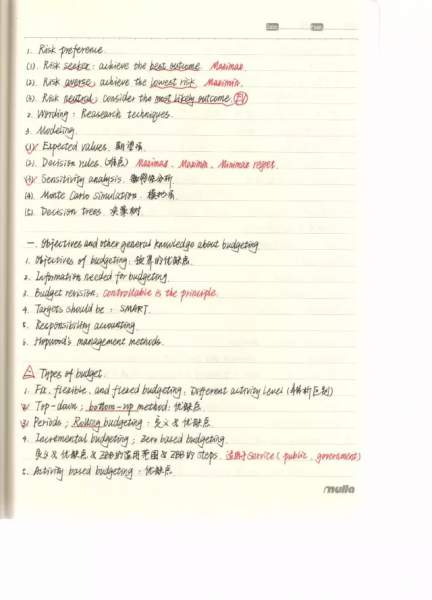 Date Page
1. Risk preference.
(1). Risk seeker: achieve the best outcome. Maximax.
(2). Risk averse, achieve the lowest risk. Maximin.
(3). Risk neutral, consider the most likely outcome.
2. Wording: Reasearch techniques.
3. Modeling.
(1) Expected values. 期望值.
(2). Decision rules. Maximax. Maximin. Minimax regret.
(3) Sensitivity analysis. 分析.
(4). Monte Carlo simulation. 模拟
(5). Decision trees. 决策树.
一. Objectives and other general knowledge about budgeting.
1. Objectives of budgeting: 预算的优缺点.
2. Information needed for budgeting.
3. Budget revision: Controllable is the principle.
4. Targets should be: SMART.
5. Responsibility accounting.
6. Hopwood's management methods.
二 Types of budget.
1. Fix, flexible, and flexed budgeting: Different activity level
2 Top-down; bottom-up method: 优缺点.
3 Periods; Rolling budgeting: 定义 & 优缺点.
4. Incremental budgeting; Zero based budgeting.
定义 & 优缺点 & ZBB的适用范围 & ZBB的 steps. 适用于 Service (public, government)
5. Activity based budgeting: 优缺点.
nulla